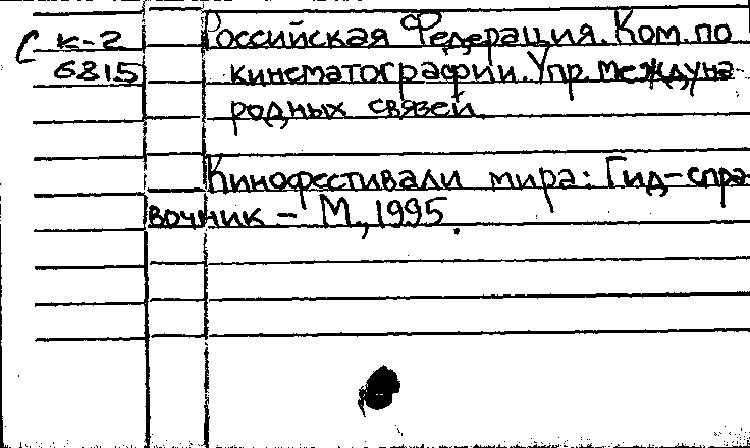 С к-2 Российская Федерация. Ком. по
6815 кинематографии. Упр. междуна-
родных связей.
Кинофестивали мира: Гид-спра-
вочник – М., 1995.